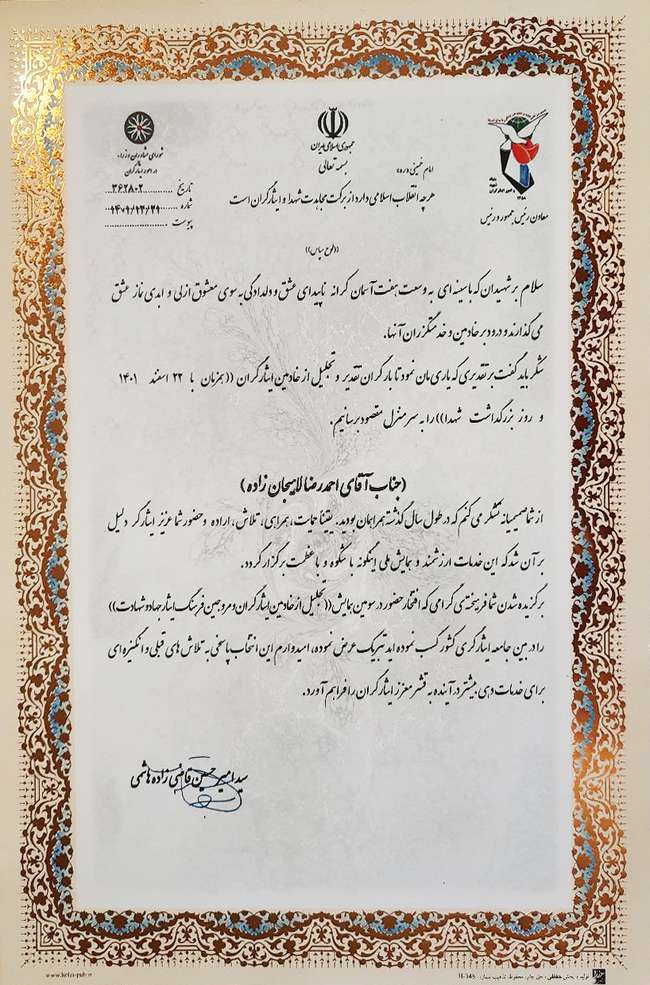 جمهوری اسلامی ایران
بسمه تعالی
شورای مشاوران وزراء
در امور ایثارگران
تاریخ ۳۶۲۸۰۲
شماره ۱۴۰۱/۱۲/۲۹
پیوست
امام خمینی (ره):
هرچه انقلاب اسلامی دارد از برکت مجاهدت شهدا و ایثارگران است
معاون رئیس جمهور و رئیس
((لوح سپاس))
سلام بر شهیدان که با سینه ای به وسعت هفت آسمان کرانه ناپیدای عشق و دلدادگی به سوی معشوق ازلی و ابدی نماز عشق
می گذارند و درود بر خادمین و خدمتگزران آنها.
شکر باید گفت بر تقدیری که یاری مان نمود تا بار گران تقدیر و تجلیل از خادمین ایثارگران ((همزمان با ۲۲ اسفند ۱۴۰۱
و روز بزرگداشت شهدا)) را به سر منزل مقصود برسانیم.
(جناب آقای احمدرضا لاهیجان زاده)
از شما صمیمانه تشکر می کنم که در طول سال گذشته همراهمان بودید. یقیناً حمایت، همراهی، تلاش، اراده و حضور شما عزیز ایثارگر دلیل
بر آن شد که این خدمات ارزشمند و همایش ملی اینگونه با شکوه و با عظمت برگزار گردد.
برگزیده شدن شما فرهیخته ی گرامی که افتخار حضور در سومین همایش ((تجلیل از خادمین ایثارگران و مروجین فرهنگ ایثار جهاد و شهادت))
را در بین جامعه ایثارگری کشور کسب نموده اید تبریک عرض نموده، امیدوارم این انتخاب پاسخی به تلاش های قبلی و انگیزه ای
برای خدمات دهی بیشتر در آینده به قشر معزز ایثارگران را فراهم آورد.
سید امیر حسین قاضی زاده هاشمی